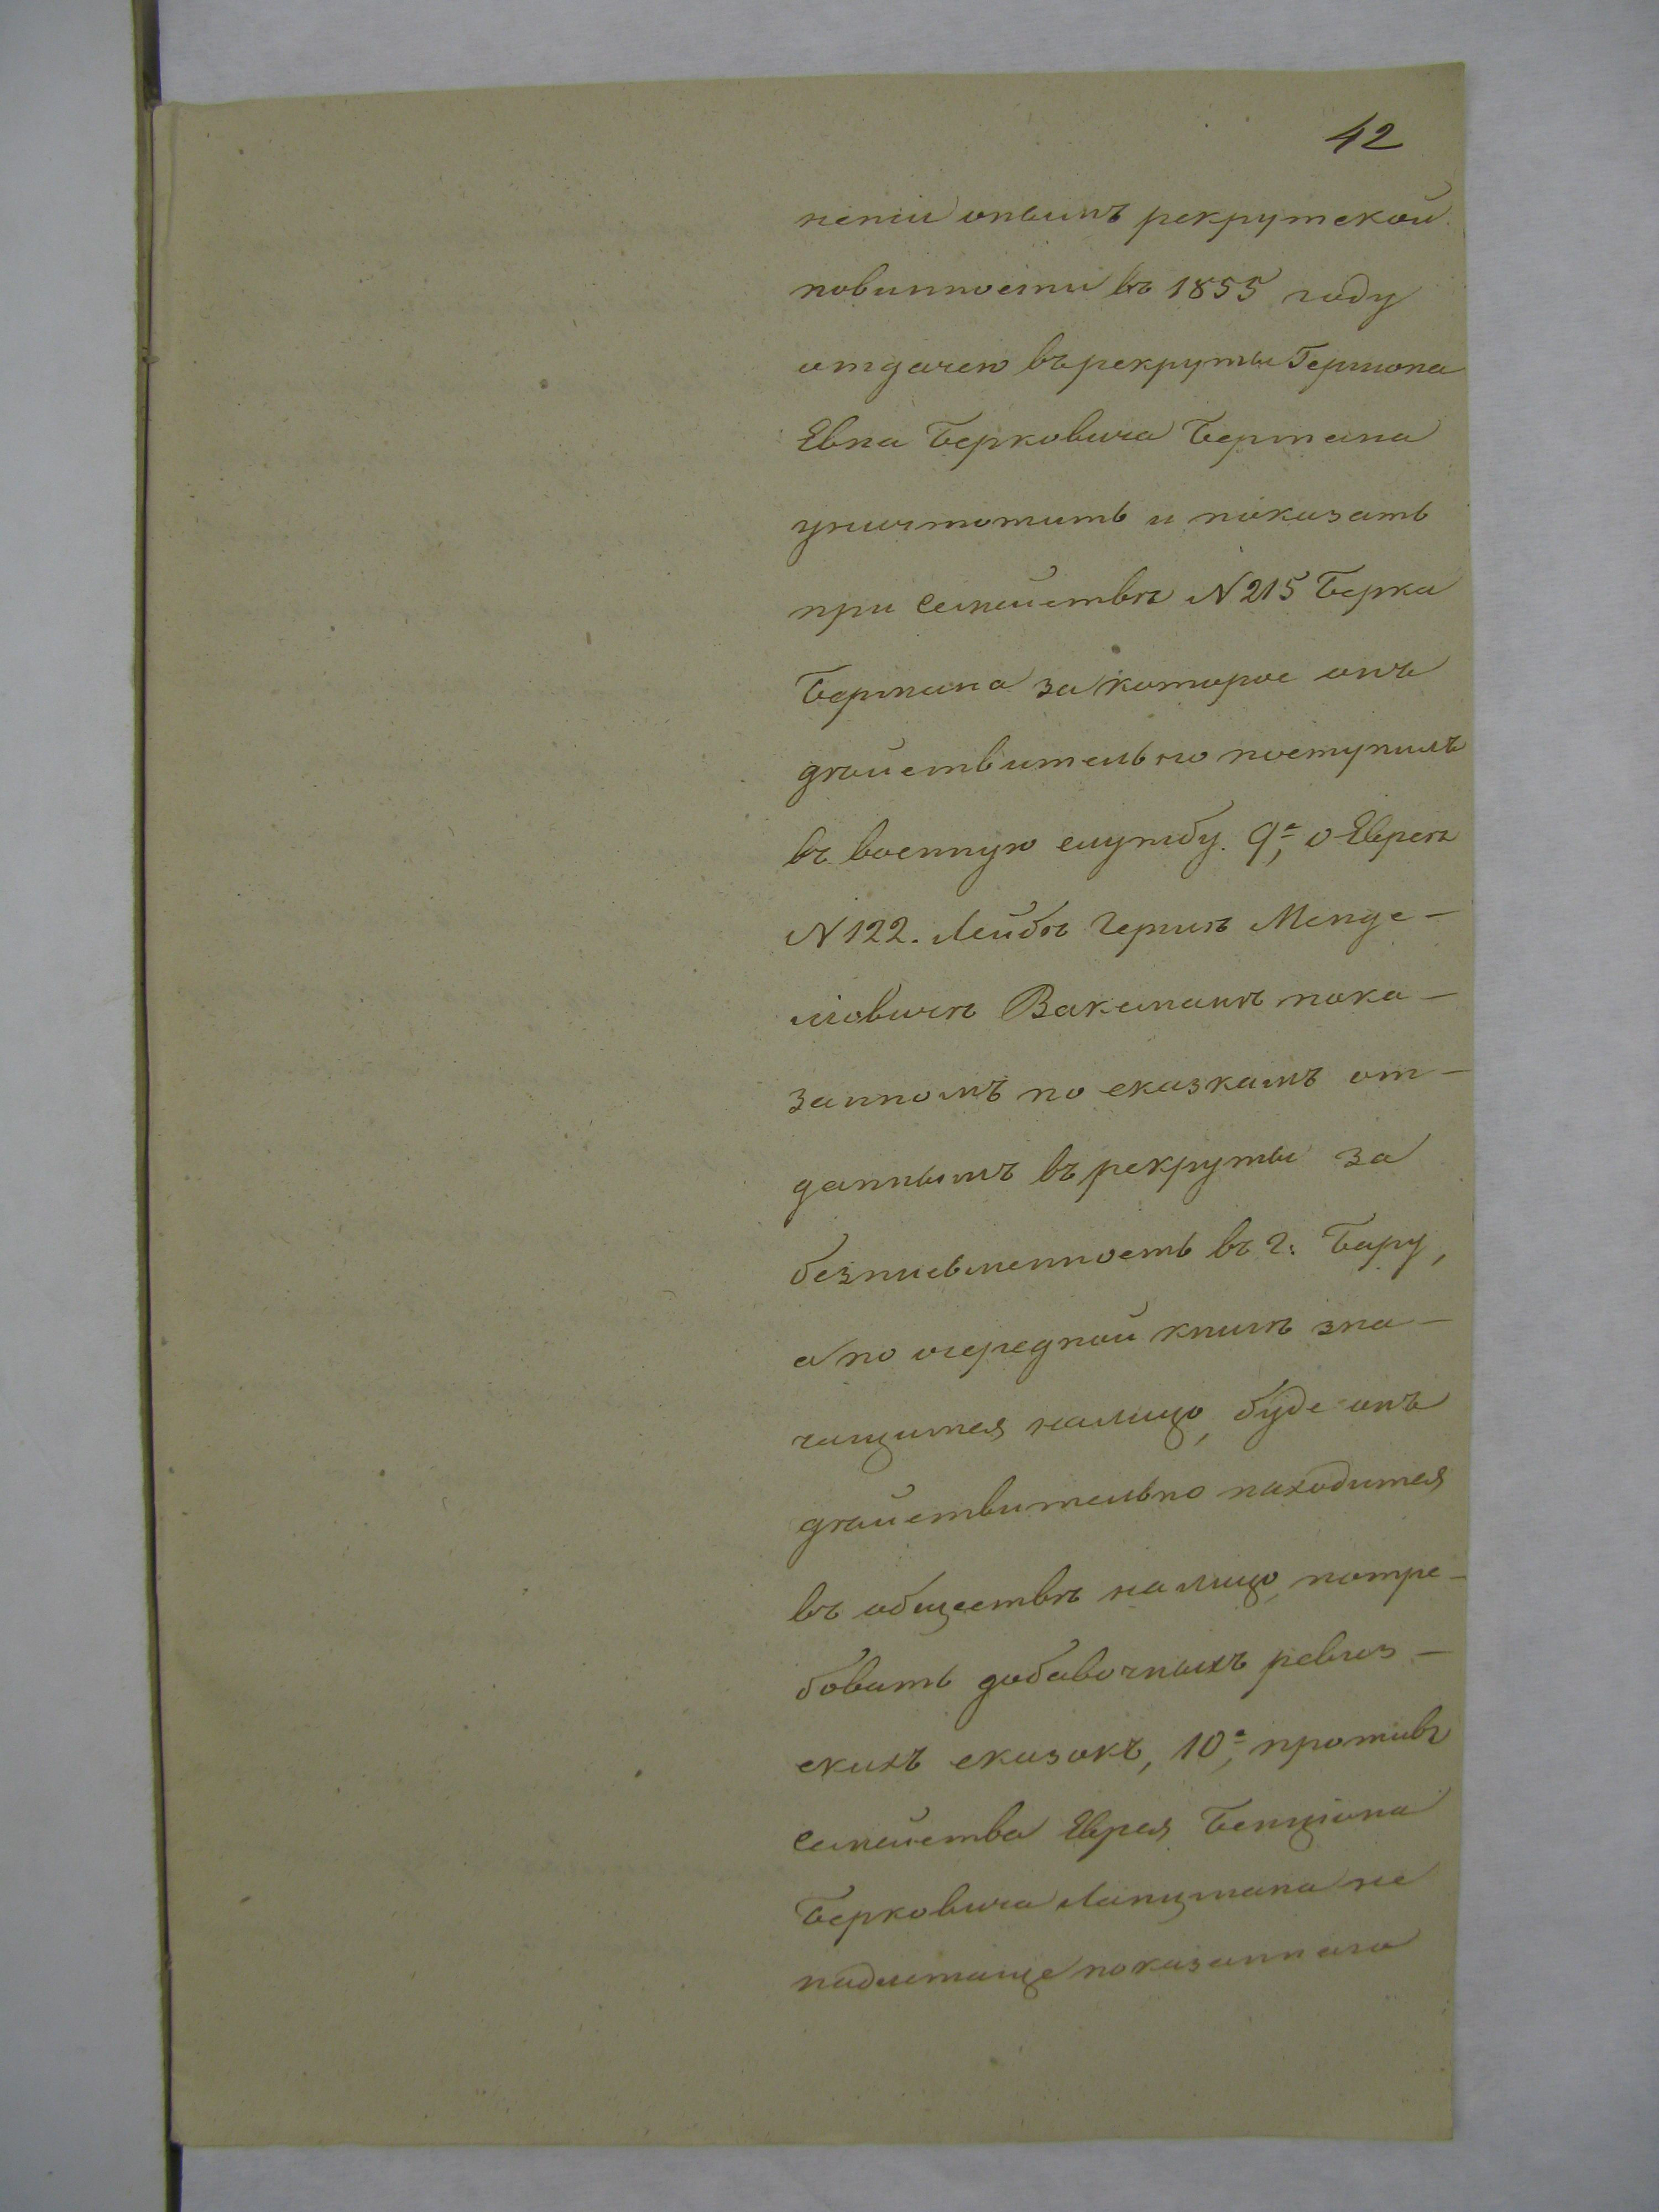 42
неніи онымъ рекрутской
повинности въ 1855 году
отдачею въ рекруты Гершона
Евна Берковича Бермана
уничтожить и показать
при семействѣ N 215 Берка
Бермана за которое онъ
дѣйствительно поступилъ
въ военную службу. 9е, о Евреѣ
N 122. Лейбѣ Герше Менде-
лiовичѣ Ваксманѣ пока-
занномъ по сказкамъ от-
даннымъ въ рекруты за
безписьменность въ г: Бару,
а по очередной книгѣ зна-
чащимся налицо, буде онъ
дѣйствительно находится
въ обществѣ на лицо, потре-
бовать добавочныхъ ревиз-
скихъ сказокъ, 10е, противъ
семейства Еврея Бенціона
Берковича Ланцмана не
надлежаще показаннаго